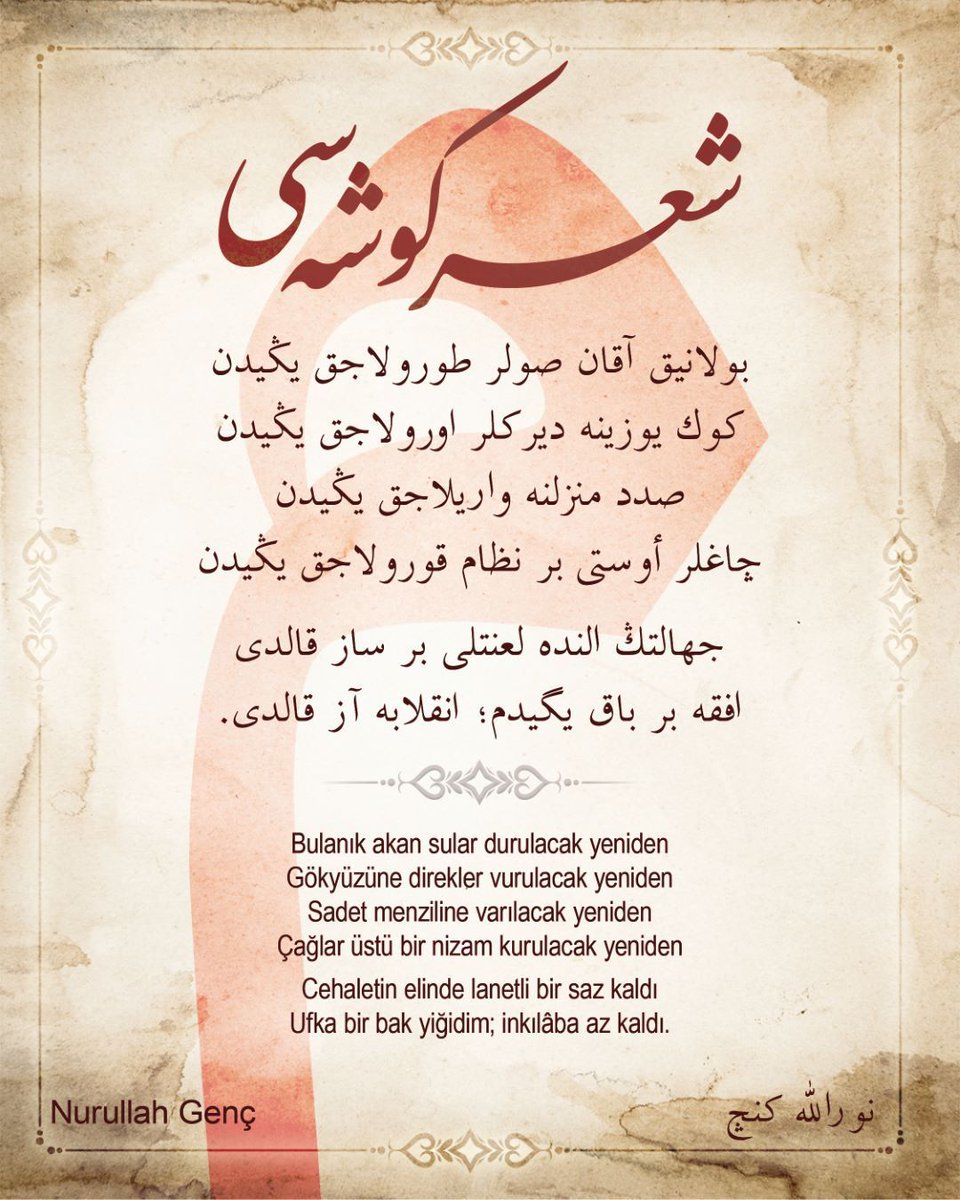 شعر كوشه سی
بولانیق آقان صولر طورولاجق یڭیدن
كوك یوزینه دیركلر اورولاجق یڭیدن
صدد منزلنه واریلاجق یڭیدن
چاغلر أوستی بر نظام قورولاجق یڭیدن
جهالتڭ النده لعنتلی بر ساز قالدی
افقه بر باق یگیدم؛ انقلابه آز قالدی.
Bulanık akan sular durulacak yeniden
Gökyüzüne direkler vurulacak yeniden
Sadet menziline varılacak yeniden
Çağlar üstü bir nizam kurulacak yeniden
Cehaletin elinde lanetli bir saz kaldı
Ufka bir bak yiğidim; inkılâba az kaldı.
Nurullah Genç
نورالله كنچ